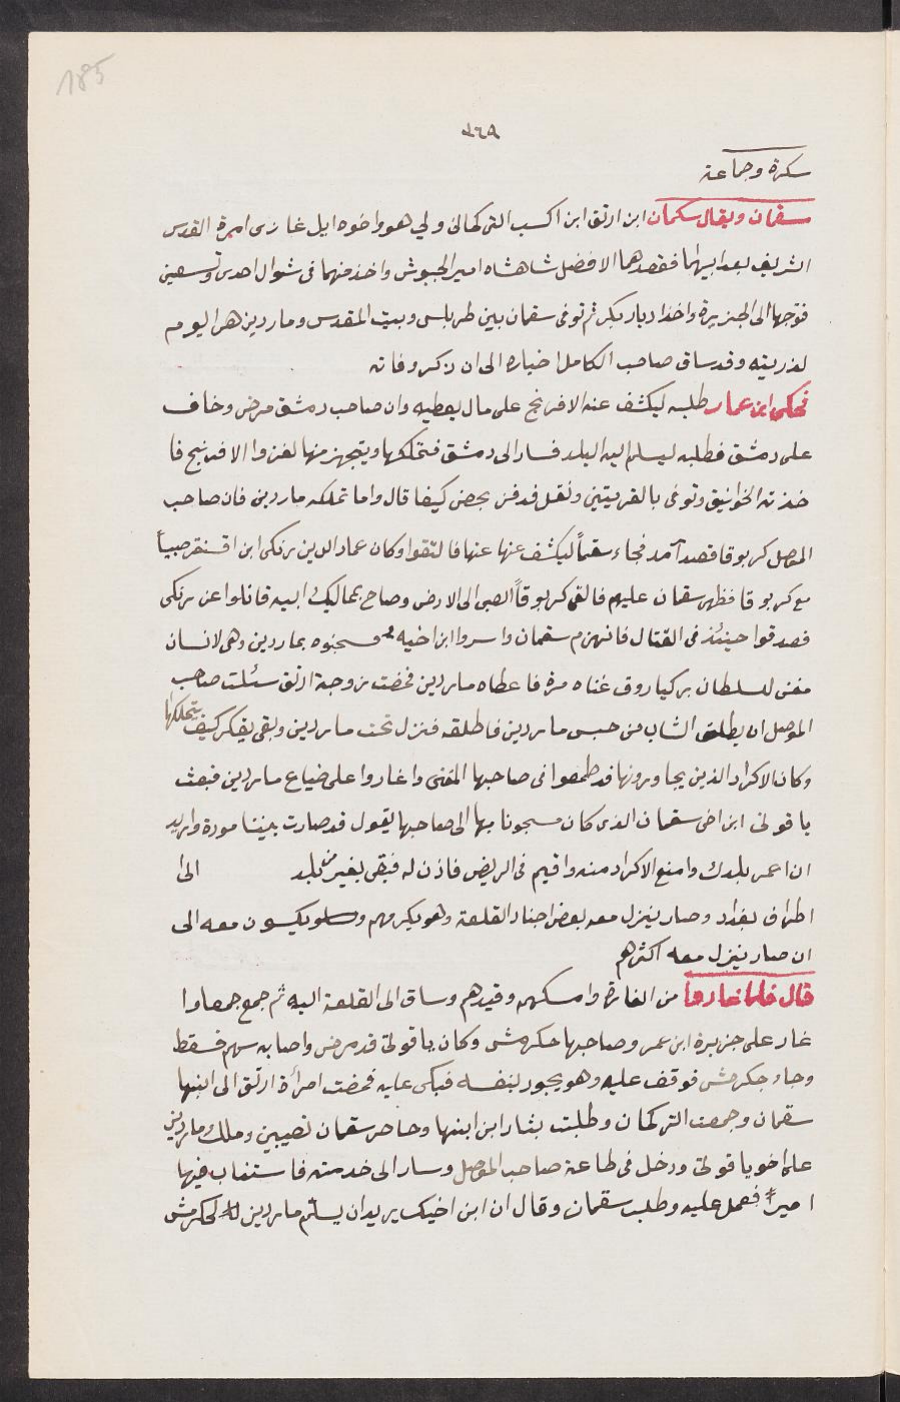 185
٢٦٩
سكرة وجماعة
سقمان ويقال سكمان ابن ارتق ابن اكسب التركمانى ولي هو واخوه ايل غازى امرة القدس
الشريف بعد ابيهما فقصدهما الافضل شاهشاه امير الجيوش واخذ منهما فى شوال احدى وتسعين
فتوجها الى الجزيرة واخذا ديار بكر ثم توفى سقمان بين طربلس وبيت المقدس وماردين هى اليوم
لذريته وقد ساق صاحب الكامل اخباره الى ان ذكر وفاته
فحكى ابن عمار طلبه ليكشف عنه الافرنج على مال يعطيه وان صاحب دمشق مرض وخاف
على دمشق فطلبه ليسلم اليه البلد فسار الى دمشق فتملكها ويتجهز منها لغزوا الافرنج فا
خذته الخوانيق وتوفى بالقريتين ونقل فدفن بحصن كيفا قال واما تملكه ماردين فان صاحب
الموصل كربوقا قصد آمد فجاء سقماً ليكشف عنها عنها فالتقوا وكان عماد الدين زنكى ابن اقسنقر صبياً
مع كربوقا فظهر سقمان عليهم فالقى كربوقاً الصبى الى الارض وصاح بمماليك ابيه قاتلوا عن زنكى
فصدقوا حينئذ فى القتال فانهزم سقمان واسروا ابن اخيه فسجنوه بماردين وهى لانسان
مغنى للسلطان بركياروق غناه مرة فاعطاه ماردين فمضت زوجة ارتق سئلت صاحب
الموصل ان يطلق الشاب من حبس ماردين فاطلقه فنزل تحت ماردين وبقى يفكر كيف يتملكها
وكان الاكراد الذين يجاورونها قد طمعوا فى صاحبها المغنى واغاروا على ضياع ماردين فبعث
ياقوتى ابن اخى سقمان الذى كان مسجونا بها الى صاحبها يقول قد صارت بيننا مودة واريد
ان اعمر بلدك وامنع الاكراد منه واقيم فى الربض فاذن له فبقى يغير من بلد الى
اطراف بغداد وصار ينزل معه بعض اجناد القلعة وهو يكرمهم ويكسون معه الى
ان صار ينزل معه اكثرهم
قال فلما عادوا من الغارة وامسكهم وقيدهم وساق الى القلعة اليه ثم جمع جمعاوا
غار على جزيرة ابن عمر وصاحبها جكرمش وكان ياقوتى قد مرض واصابه سهم فسقط
وجاء جكرمش فوقف عليه وهو يجود بنفسه فبكى عليه فمضت امرأة ارتق الى ابنها
سقمان وجمعت التركمان وطلبت بثار ابن ابنها وحاصر سقمان نصيبين وملك ماردين
على اخو ياقوتى ودخل فى طاعة صاحب الموصل وسار الى خدمته فاستناب فيها
اميراً فعمل عليه وطلب سقمان وقال ان ابن اخيك يريد ان يسلم ماردين لجكرمش